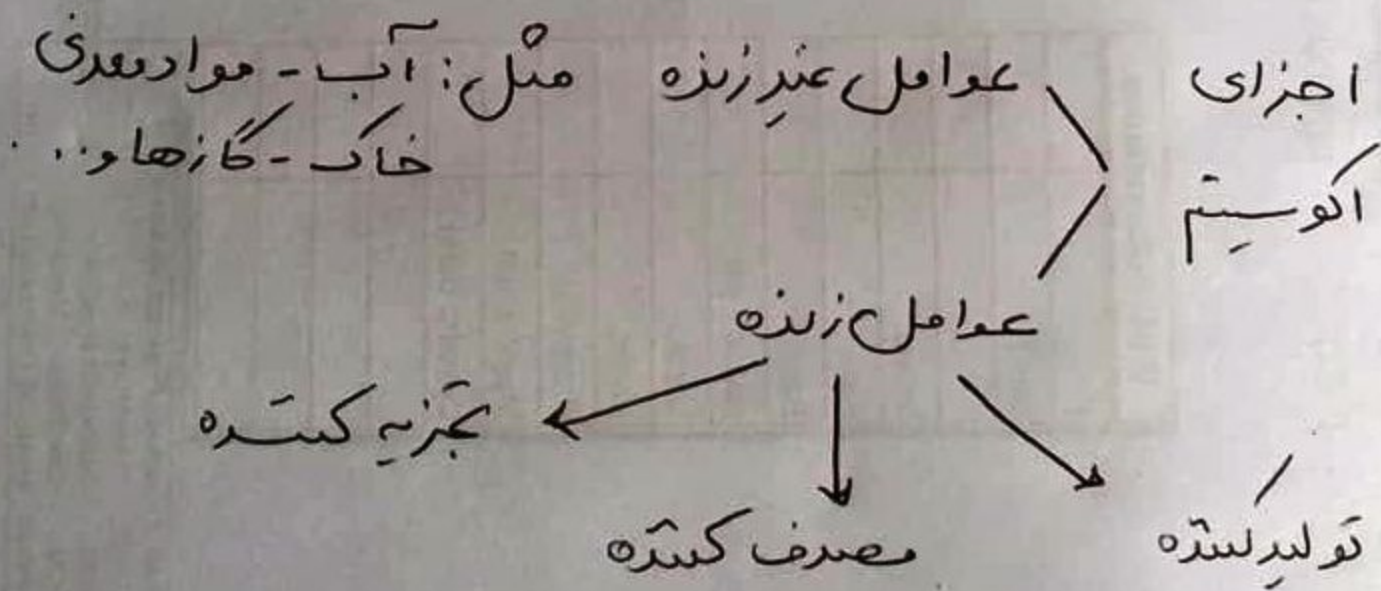 اجزای
اکوسیستم
عوامل غیر زنده مثل: آب - مواد معدنی
خاک - گازها و...
عوامل زنده
تولید کننده
مصرف کننده
تجزیه کننده